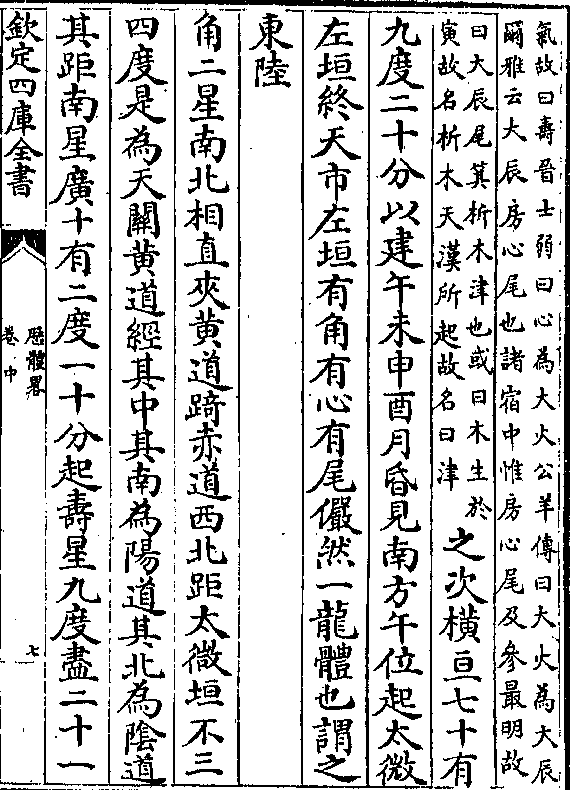 氣故曰壽晉士弱曰心為大火公羊傳曰大火為大辰
爾雅云大辰房心尾也諸宿中惟房心尾及參最明故
曰大辰尾箕析木津也或曰木生於
寅故名析木天漢所起故名曰津
之次橫亘七十有
九度二十分以建午未申酉月昏見南方午位起太微
左垣終天市左垣有角有心有尾儼然一龍體也謂之
東陸
角二星南北相直夾黄道踦赤道西北距太微垣不三
四度是為天關黄道經其中其南為陽道其北為陰道
其距南星廣十有二度一十分起壽星九度盡二十一
欽定四庫全書
歴體畧
卷中
七